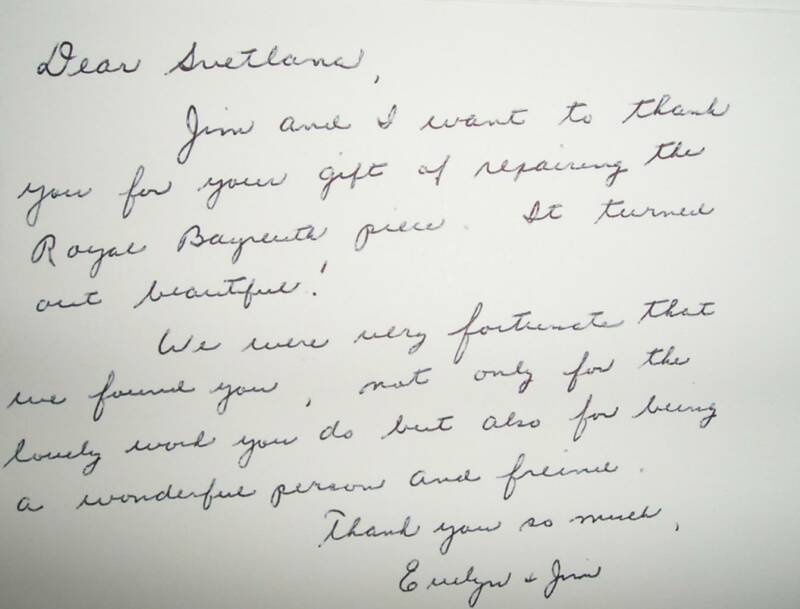 Dear Svetlana,
Jim and I want to thank
you for your gift of repairing the
Royal Bayreuth piece. It turned
out beautiful!
We were very fortunate that
we found you, not only for the
lovely work you do but also for being
a wonderful person and freind.
Thank you so much,
Evelyn & Jim